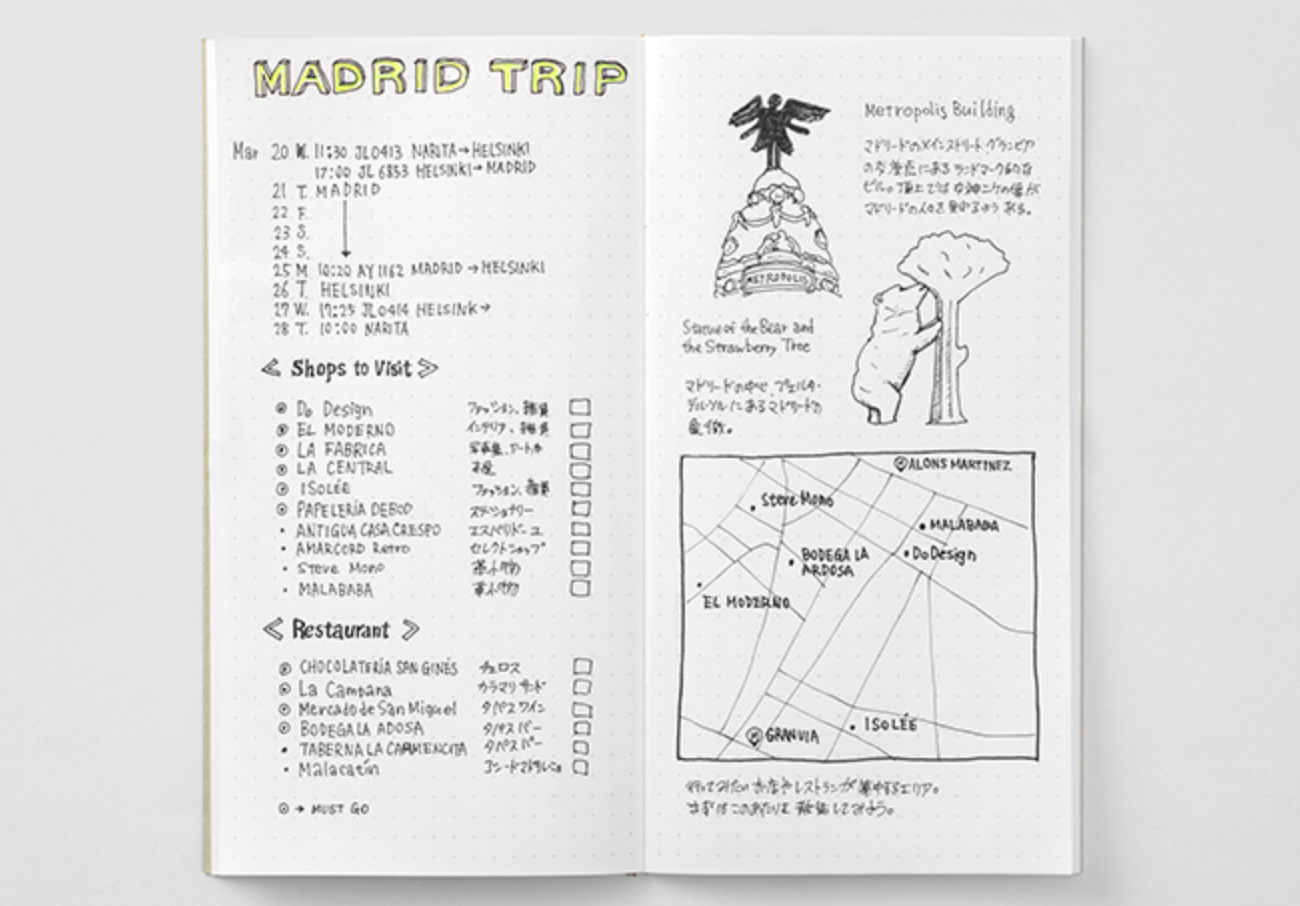 MADRID TRIP
Mar 20 W. 11:30 JL0413 NARITA→HELSINKI
17:00 JL 6853 HELSINKI→MADRID
21 T. MADRID
22 F.
23 S.
24 S.
25 M 10:20 AY1162 MADRID →HELSINKI
26 T. HELSINKI
27 W. 17:25 JL0414 HELSINK→
28 T. 10:00 NARITA
≪ Shops to Visit ≫
◉ Do Design ファッション、雑貨
◉ EL MODERNO インテリア、雑貨
◉ LA FABRICA 写真集、アート本
◉ LA CENTRAL 本屋
◉ ISOLÉE ファッション、雑貨
◉ PAPELERÍA DEBOD ステーショナリー
・ ANTIGUA CASA CRESPO エスパドリーユ
・ AMARCORD Retro セレクトショップ
・ Steve Mono 革小物
・ MALABABA 革小物
≪ Restaurant ≫
◉ CHOCOLATERÍA SAN GINÉS チュロス
◉ La Campana カラマリサンド
◉ Mercado de San Miguel タパス ワイン
◉ BODEGA LA ADOSA タパス バー
・ TABERNA LA CARMENCITA タパス バー
・ Malacatín
◉ → MUST GO
Metropolis Building
マドリードのメインストリート・グランビア
にあるランドマーク的な
ビル。頂上では女神ニケの像が
マドリードの人々を
METROPOLIS
Statue of the Bear and
the Strawberry Tree
マドリードの中心、プエルタ・
デル・ソルにあるマドリードの
象徴。
ALONS MARTINEZ
Steve Mono
MALABABA
BODEGA LA
ARDOSA
Do Design
EL MODERNO
ISOLÉE
GRANVIA
行ってみたいお店やレストランが集中するエリア。
まずはこのあたりを散策してみよう。